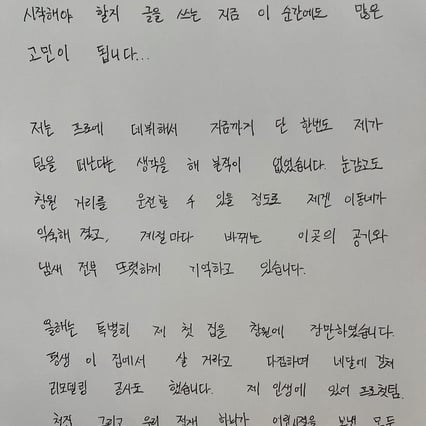 시작해야 할지 글을 쓰는 지금 이 순간에도 많은
고민이 됩니다...
저는 프로에 데뷔해서 지금까지 단 한번도 제가
팀을 떠난다는 생각을 해 본적이 없었습니다. 눈감고도
창원 거리를 운전할 수 있을 정도로 제겐 이동네가
익숙해 졌고, 계절마다 바뀌는 이곳의 공기와
냄새 전부 또렷하게 기억하고 있습니다.
올해는 특별히 제 첫 집을 창원에 장만하였습니다.
평생 이 집에서 살 거라고 다짐하며 네달에 걸쳐
리모델링 공사도 했습니다. 제 인생에 있어 프로첫팀,
첫집 그리고 우리 첫째 하나가 어린시절을 보낸 모두